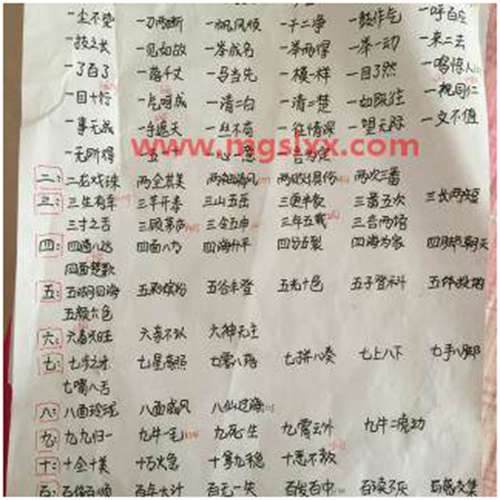 一尘不染 一刀两断 一帆风顺 一干二净 一鼓作气 一呼百应
一技之长 一见如故 一举成名 一举两得 一举一动 一来二去
一了百了 一落千丈 一马当先 一模一样 一目了然 一鸣惊人
一目十行 一气呵成 一清二白 一清二楚 一如既往 一视同仁
一事无成 一手遮天 一丝不苟 一往情深 一望无际 一文不值
一无所得
www.mgslxx.com
二: 二龙戏珠 两全其美 两袖清风 两败俱伤 两次三番
三: 三生有幸 三羊开泰 三山五岳 三更半夜 三番五次 三长两短
三寸之舌 三顾茅庐 三令五申 三年五载 三言两语
四: 四通八达 四面八方 四海升平 四分五裂 四海为家 四脚朝天
四面楚歌
五: 五湖四海 五彩缤纷 五谷丰登 五光十色 五子登科 五体投地
五颜六色
六: 六畜兴旺 六亲不认 六神无主
七: 七步之才 七星高照 七零八落 七拼八凑 七上八下 七手八脚
七嘴八舌
八: 八面玲珑 八面威风 八仙过海
九: 九九归一 九牛一毛 九死一生 九霄云外 九牛二虎
十: 十全十美 十万火急 十拿九稳 十恶不赦
百: 百依百顺 百年大计 百无一失 百发百中 百读不厌